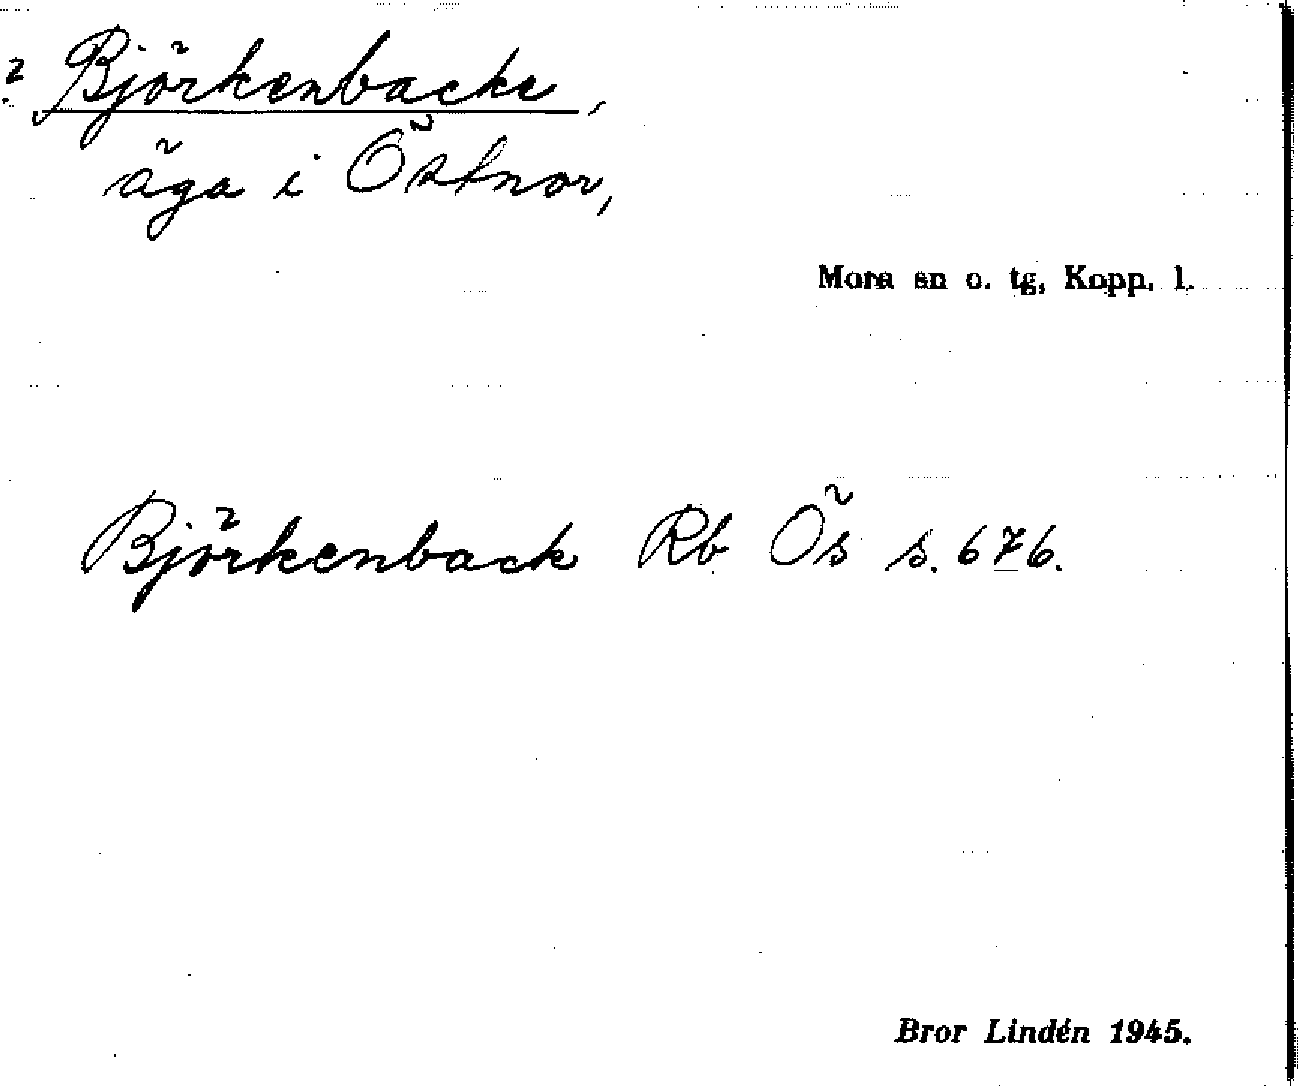 ? Björkenbacke,
äga i Östnor,
Mora sn o. tg, Kopp. l.
Björkenback Rb Ös s. 676.
Bror Lindén 1945.